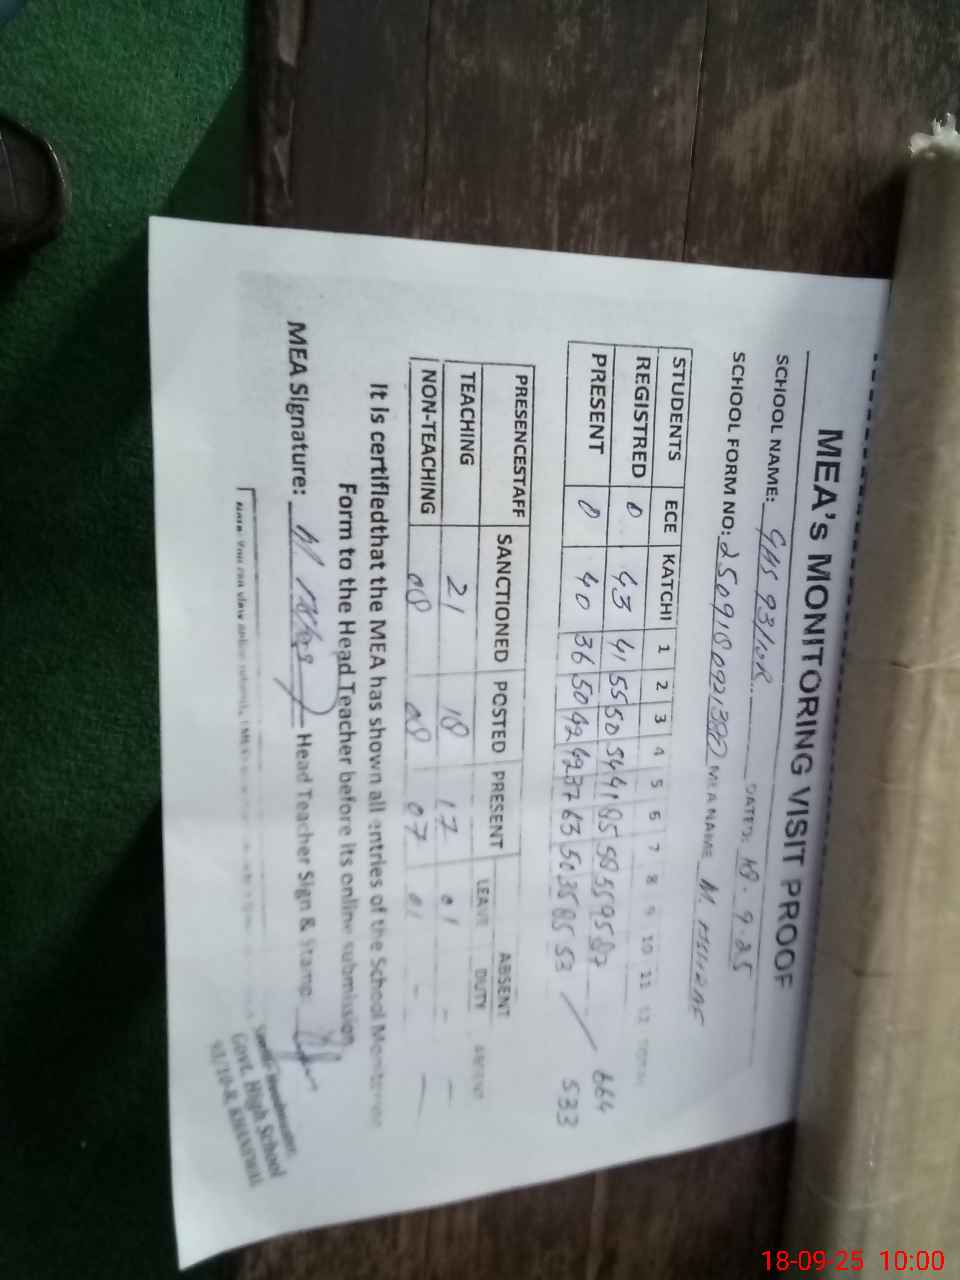 MEA's MONITORING VISIT PROOF
SCHOOL NAME: GHS 93/10R DATED: 18.9.25
SCHOOL FORM NO: MEA NAME M.
STUDENTS ECE KATCHI 1 2 3 4 5 6 7 8 9 10 11 12 TOTAL
REGISTRED 0 43 41 55 50 54 41 85 58 55 95 87 664
PRESENT 0 40 36 50 42 42 37 63 50 35 85 53 533
PRESENCESTAFF SANCTIONED POSTED PRESENT ABSENT
LEAVE DUTY ABSENT
TEACHING 21 18 17 01 - -
NON-TEACHING 08 08 07 01 - -
It is certifiedthat the MEA has shown all entries of the School Monitoring
Form to the Head Teacher before its online submission
MEA Signature: Head Teacher Sign & Stamp
Govt. High School
93/10-R, KHANEWAL
Note: You can view online
18-09-25 10:00